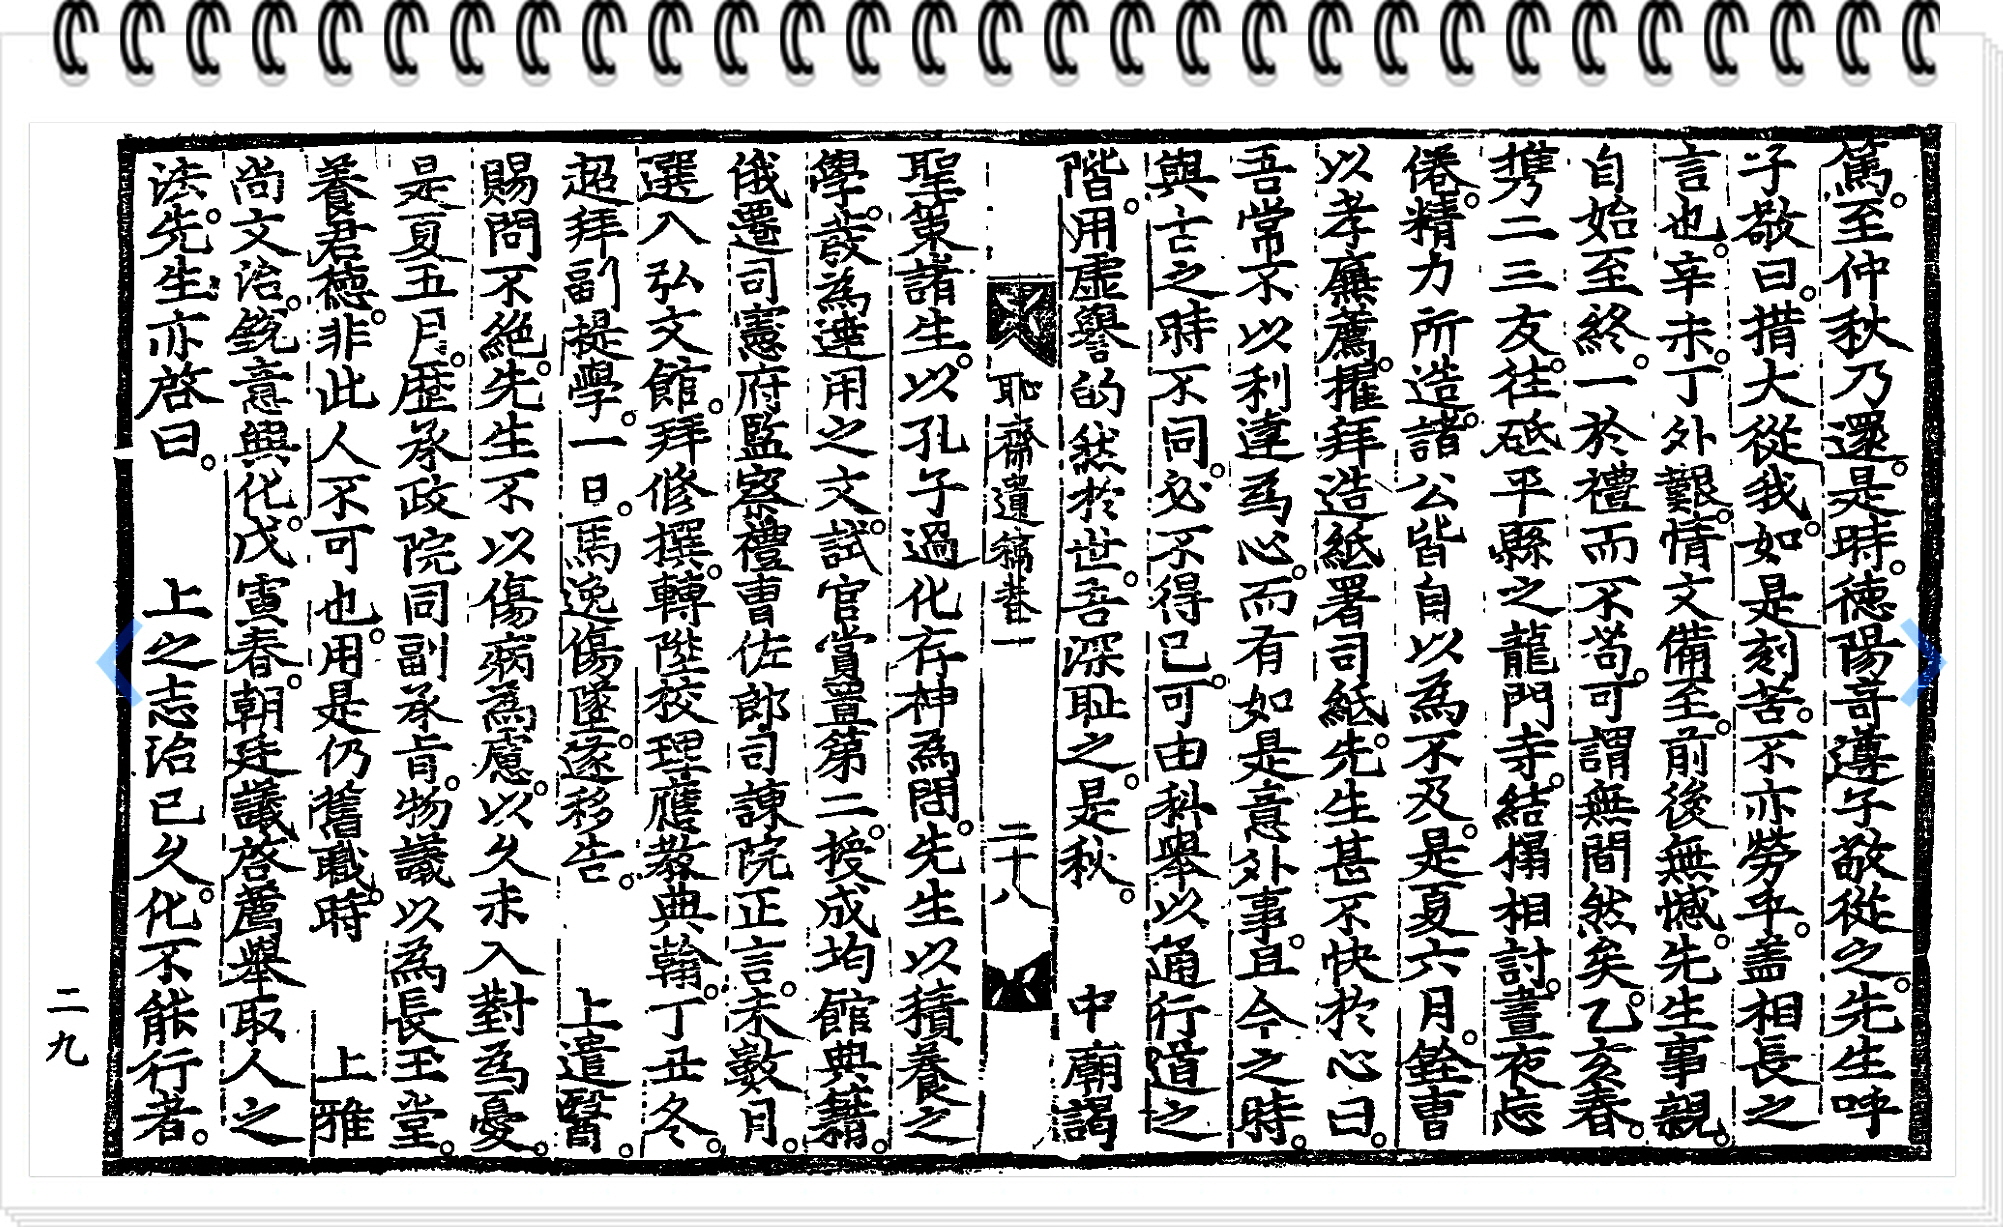 篤。至仲秋乃還。是時。德陽哥遵子敬從之。先生呼
子敬曰。措大從我。如是刻苦。不亦勞乎。盖相長之
言也。辛未。丁外艱。情文備至。前後無憾。先生事親。
自始至終。一於禮而不苟。可謂無間然矣。乙亥春。
携二三友。往砥平縣之龍門寺。結榻相討。晝夜忘
倦。精力所造。諸公皆自以爲不及。是夏六月。銓曹
以孝廉薦。擢拜造紙署司紙。先生甚不快於心曰。
吾常不以利達爲心。而有如是意外事。且今之時。
與古之時不同。必不得已。可由科擧以通行道之
階。用虛譽的然於世。吾深耻之。是秋。 中廟謁
聖策諸生。以孔子過化存神爲問。先生以積養之
學。發爲達用之文。試官賞置第二。授成均館典籍。
俄遷司憲府監察禮曹佐郎司諫院正言。未數月。
選入弘文館。拜修撰。轉陞校理應敎典翰。丁丑冬。
超拜副提學。一日。馬逸傷墜。遂移告。 上遣醫。
賜問不絶。先生不以傷病爲慮。以久未入對爲憂。
是夏五月。歷承政院同副承旨。物議以爲長玉堂。
養君德。非此人不可也。用是仍舊職。時 上雅
尙文治。銳意興化。戊寅春。朝廷議啓薦擧取人之
法。先生亦啓曰。 上之志治已久。化不能行者。
耻齋遺稿卷一 二十八
二九